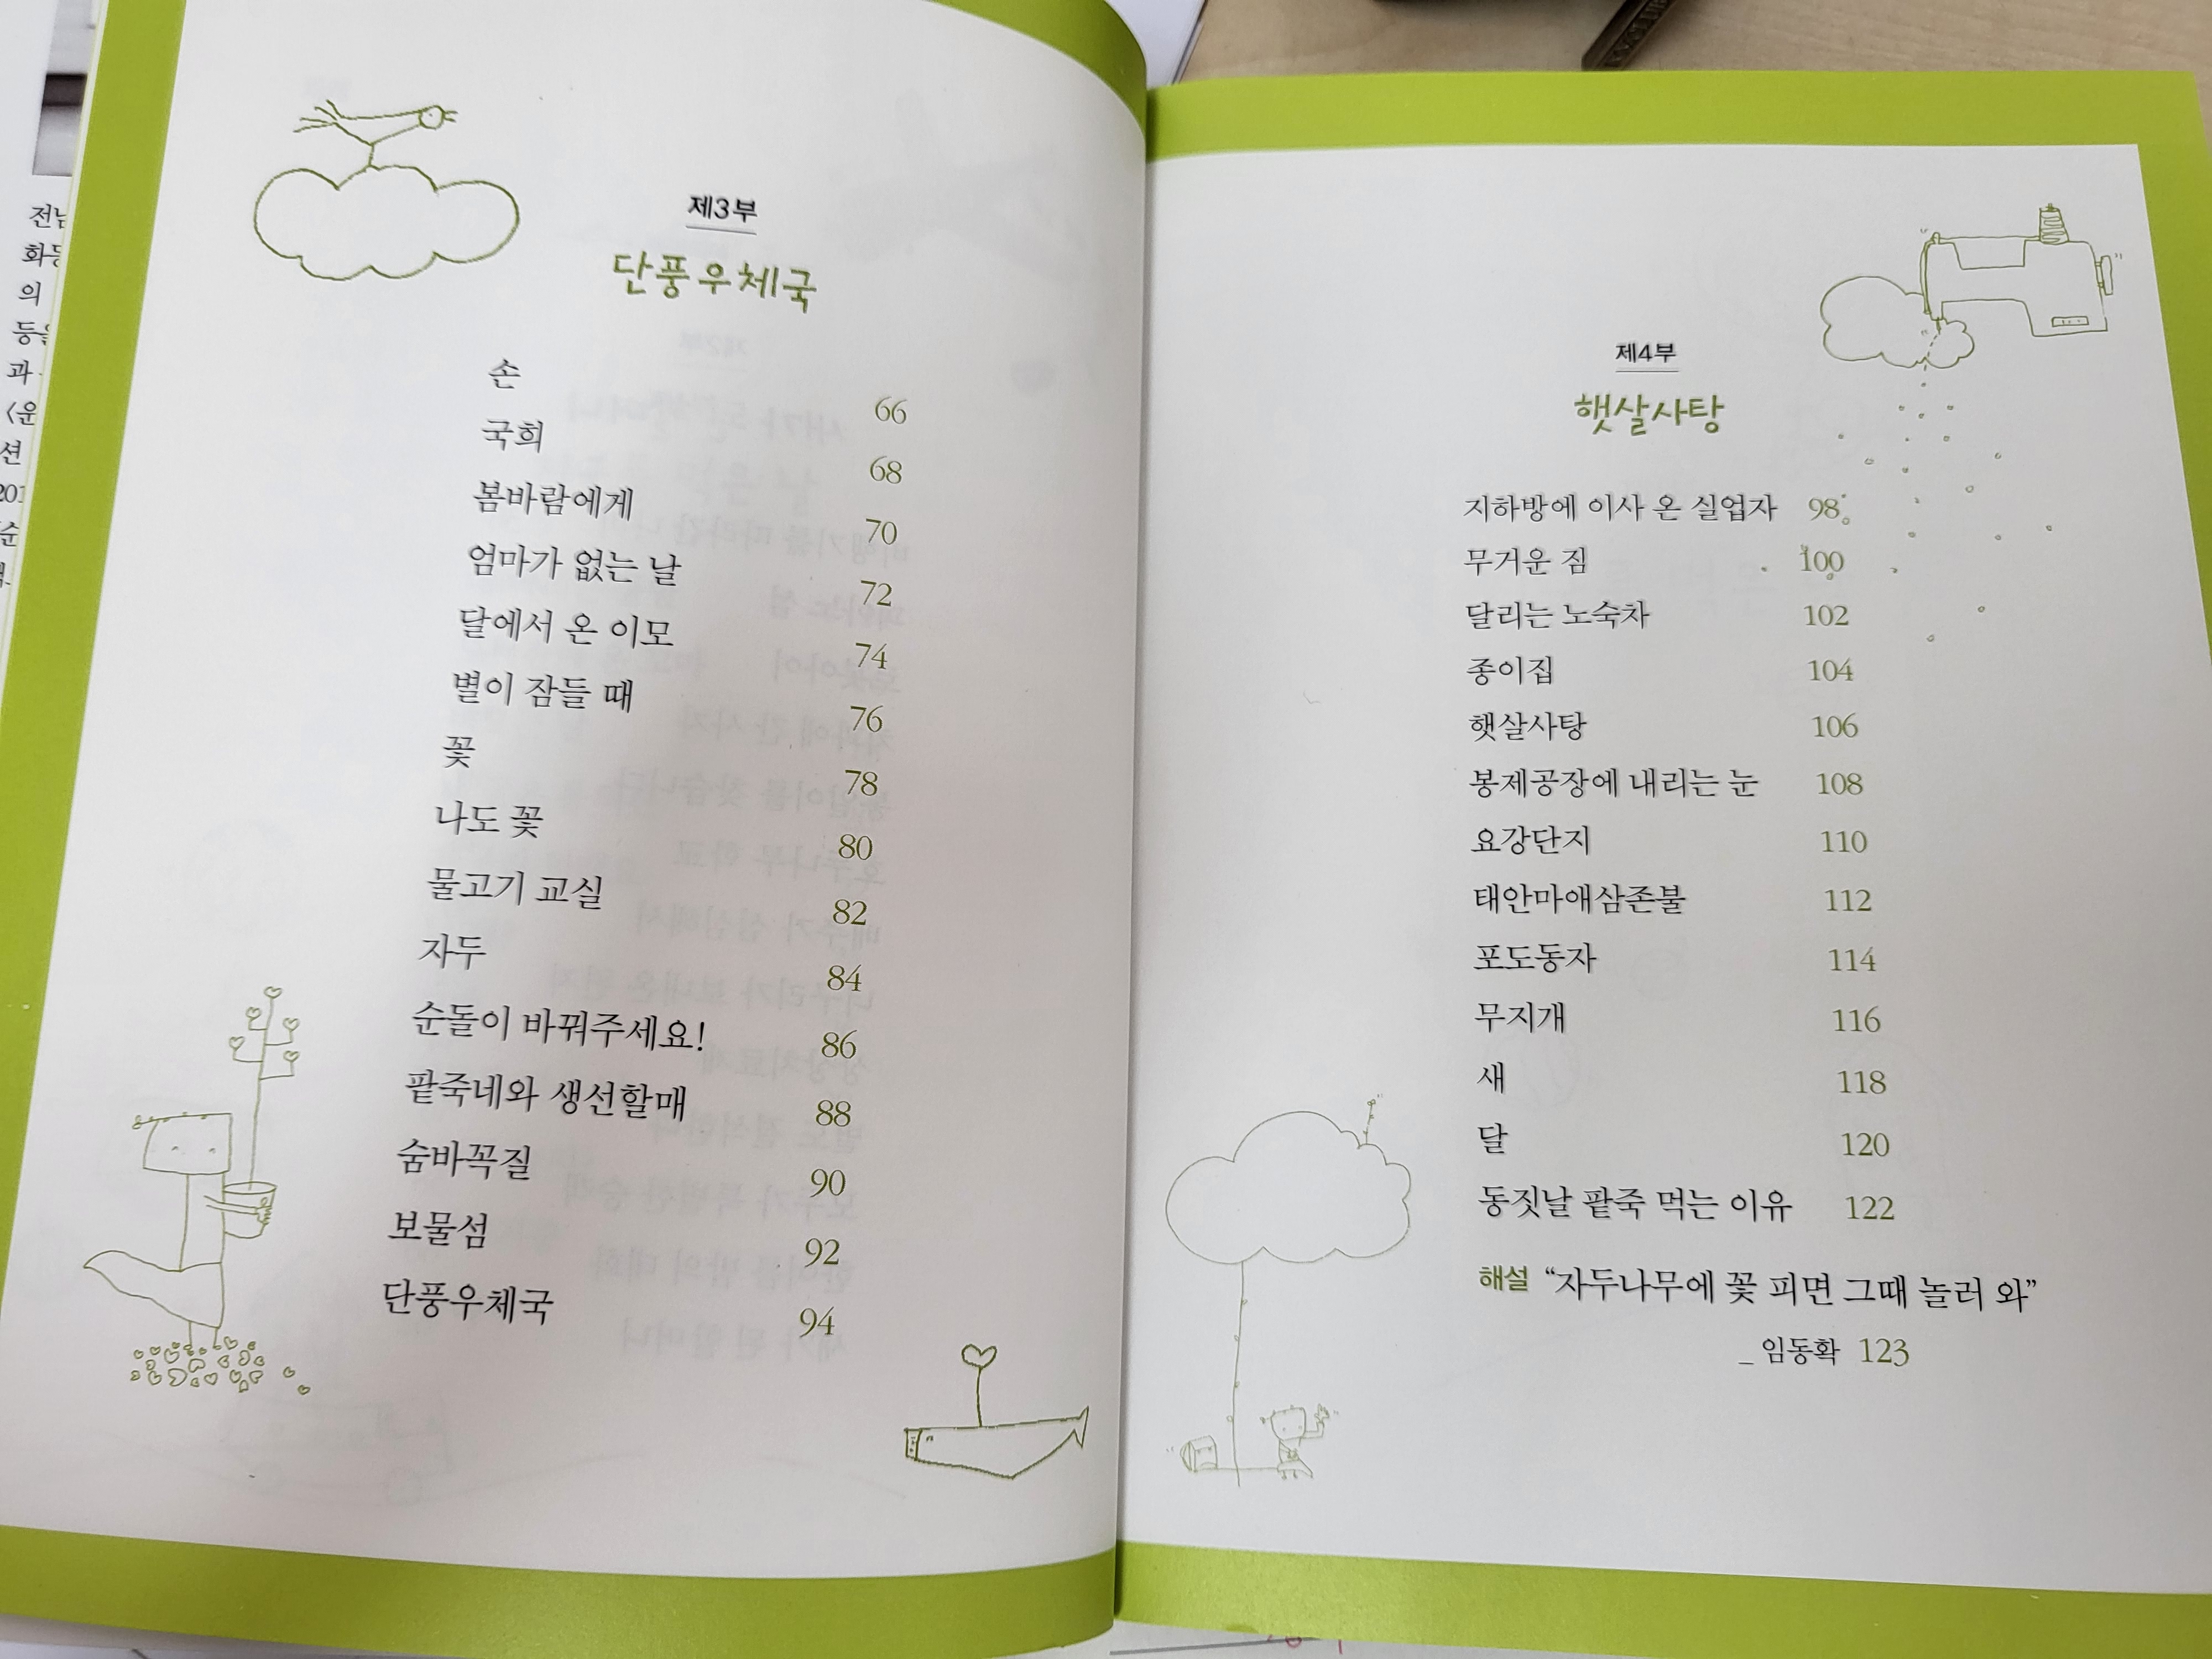 제3부
단풍우체국
손 66
국희 68
봄바람에게 70
엄마가 없는 날 72
달에서 온 이모 74
별이 잠들 때 76
꽃 78
나도 꽃 80
물고기 교실 82
자두 84
순돌이 바꿔주세요! 86
팥죽네와 생선할매 88
숨바꼭질 90
보물섬 92
단풍우체국 94
제4부
햇살사탕
지하방에 이사 온 실업자 98
무거운 짐 100
달리는 노숙차 102
종이집 104
햇살사탕 106
봉제공장에 내리는 눈 108
요강단지 110
태안마애삼존불 112
포도동자 114
무지개 116
새 118
달 120
동짓날 팥죽 먹는 이유 122
해설 “자두나무에 꽃 피면 그때 놀러 와”
_ 임동확 123